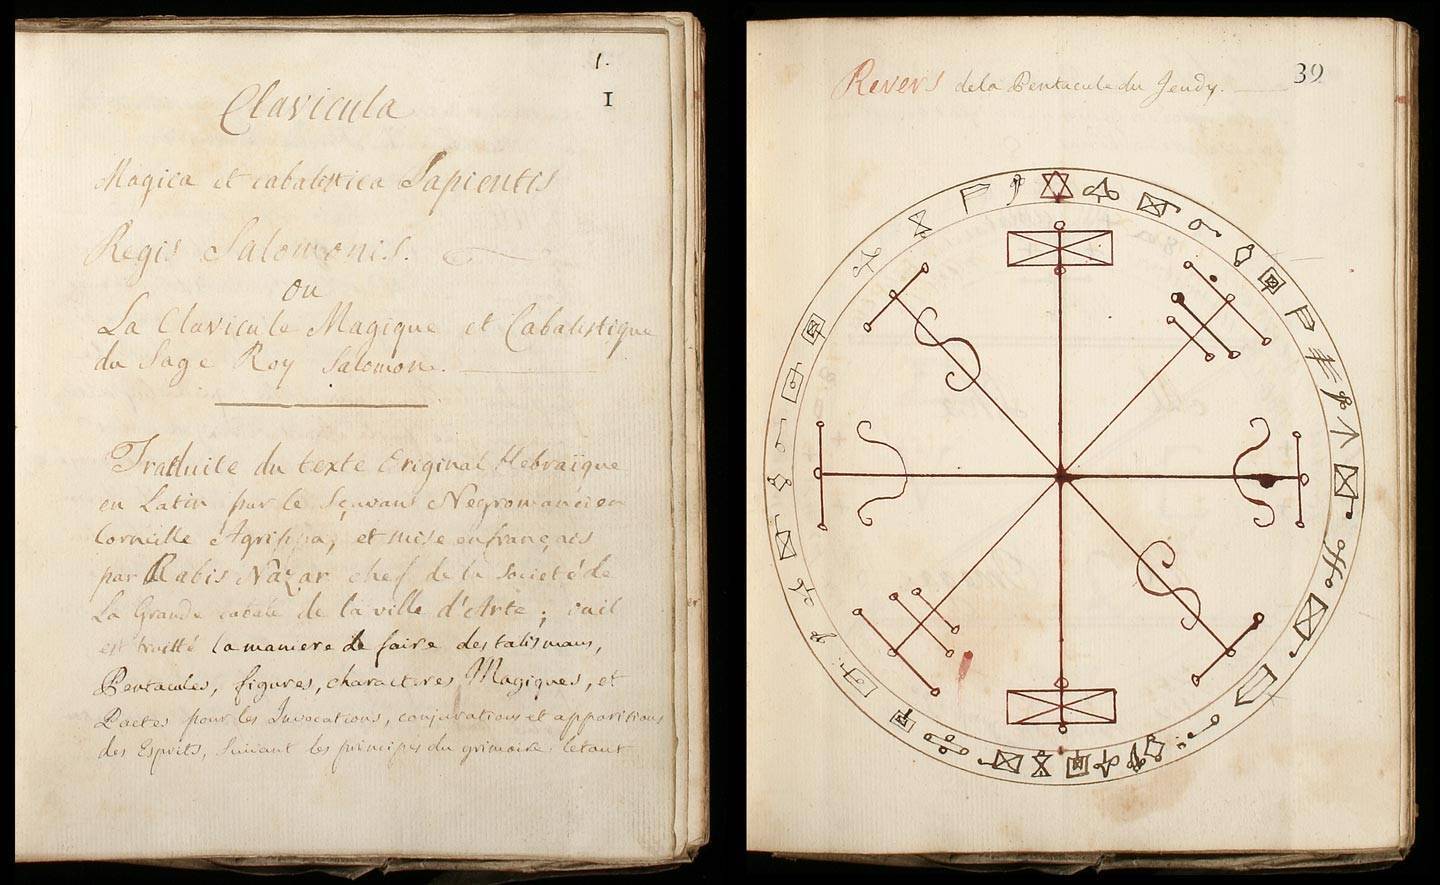 1.
I
Clavicula
Magica et cabalistica Sapientis
Regis Salomonis.
ou
La Clavicule Magique et Cabalistique
du Sage Roy Salomon.
Traduite du texte Original Hebraïque
en Latin par le Sçavant Negromancien
Corneille Agrippa, et mise en français
par Rabis Nazar chef de la Societé de
La Grande cabale de la ville d'Arte; ou il
est traitté la maniere de faire des talismans,
Pentacules, figures, characteres Magiques, et
Pactes pour les Invocations, conjurations et apparitions
des Esprits, Suivant les principes du grimoire
39
Revers de la Pentacule du Jeudy.